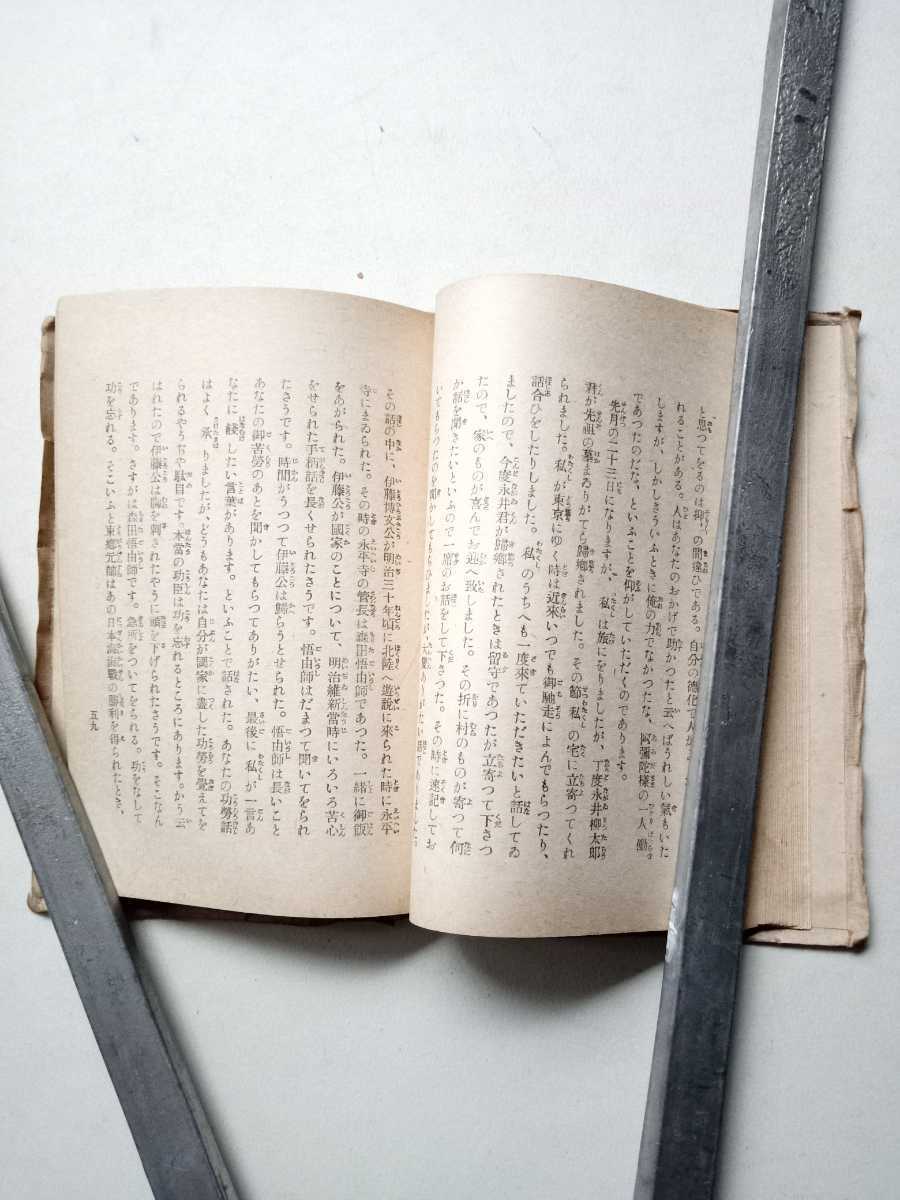 と思つてをるのは抑の間違ひである。自分の德化で人が
れることがある。人はあなたのおかげで助かつたと云へばうれしい氣もいた
しますが、しかしさういふときに俺の力でなかつたな、阿彌陀様の一人働
であつたのだな、といふことを仰がしていただくのであります。
先月の二十三日になりますが、私は旅にをりましたが、丁度永井柳太郎
君が先祖の墓まゐりがてら歸鄕されました。その節私の宅に立寄つてくれ
られました。私が東京にゆく時は近來いつでも御馳走によんでもらつたり、
話合ひをしたりしました。私のうちへも一度來ていただきたいと話してゐ
ましたので、今度永井君が歸鄕されたときは留守であつたが立寄つて下さつ
たので、家のものが喜んでお迎へ致しました。その折に村のものが寄つて何
か話を聞きたいといふので一席のお話をして下さつた。その時に速記してお
いてもらつたのを聞かしてもらひましたが、大變ありがたい話でありました。
その話の中に、伊藤博文公が明治三十年頃に北陸へ遊說に來られた時に永平
寺にまゐられた。その時の永平寺の管長は森田悟由師であつた。一緒に御飯
をあがられた。伊藤公が國家のことについて、明治維新當時にいろいろ苦心
をせられた手柄話を長くせられたさうです。悟由師はだまつて聞いてをられ
たさうです。時間がうつつて伊藤公は歸らうとせられた。悟由師は長いこと
あなたの御苦勞のあとを聞かしてもらつてありがたい、最後に私が一言あ
なたに餞したい言葉があります。といふことで話された。あなたの功勞話
はよく承りましたが、どうもあなたは自分が國家に盡した功勞を覺えてを
られるやうぢや駄目です。本當の功臣は功を忘れるところにあります。から云
はれたので伊藤公は胸を刺されたやうに頭を下げられたさうです。そこなん
であります。さすがは森田悟由師です。急所をついてをられる。功をなして
功を忘れる。そこいふと東鄕元帥はあの日本海海戰の勝利を得られたとき、
五九